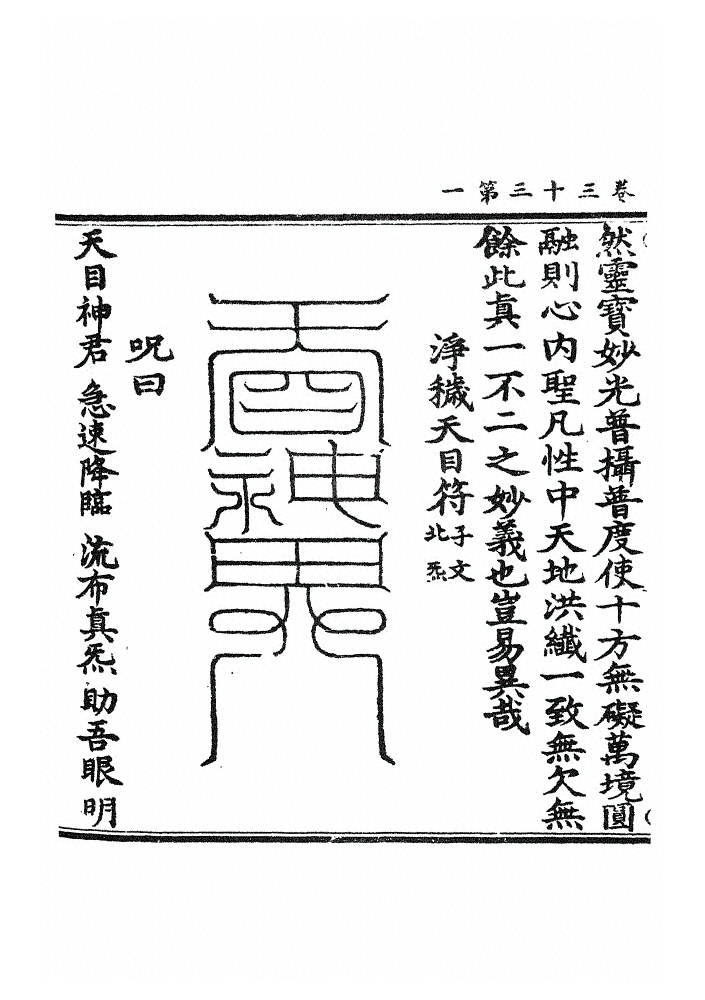 卷三十三第一
然靈寶妙光普攝普度使十方無礙萬境圓
融則心內聖凡性中天地洪纖一致無欠無
餘此眞一不二之妙義也豈易異哉
淨穢天目符子文北炁
呪曰
天目神君急速降臨流布真炁助吾眼明